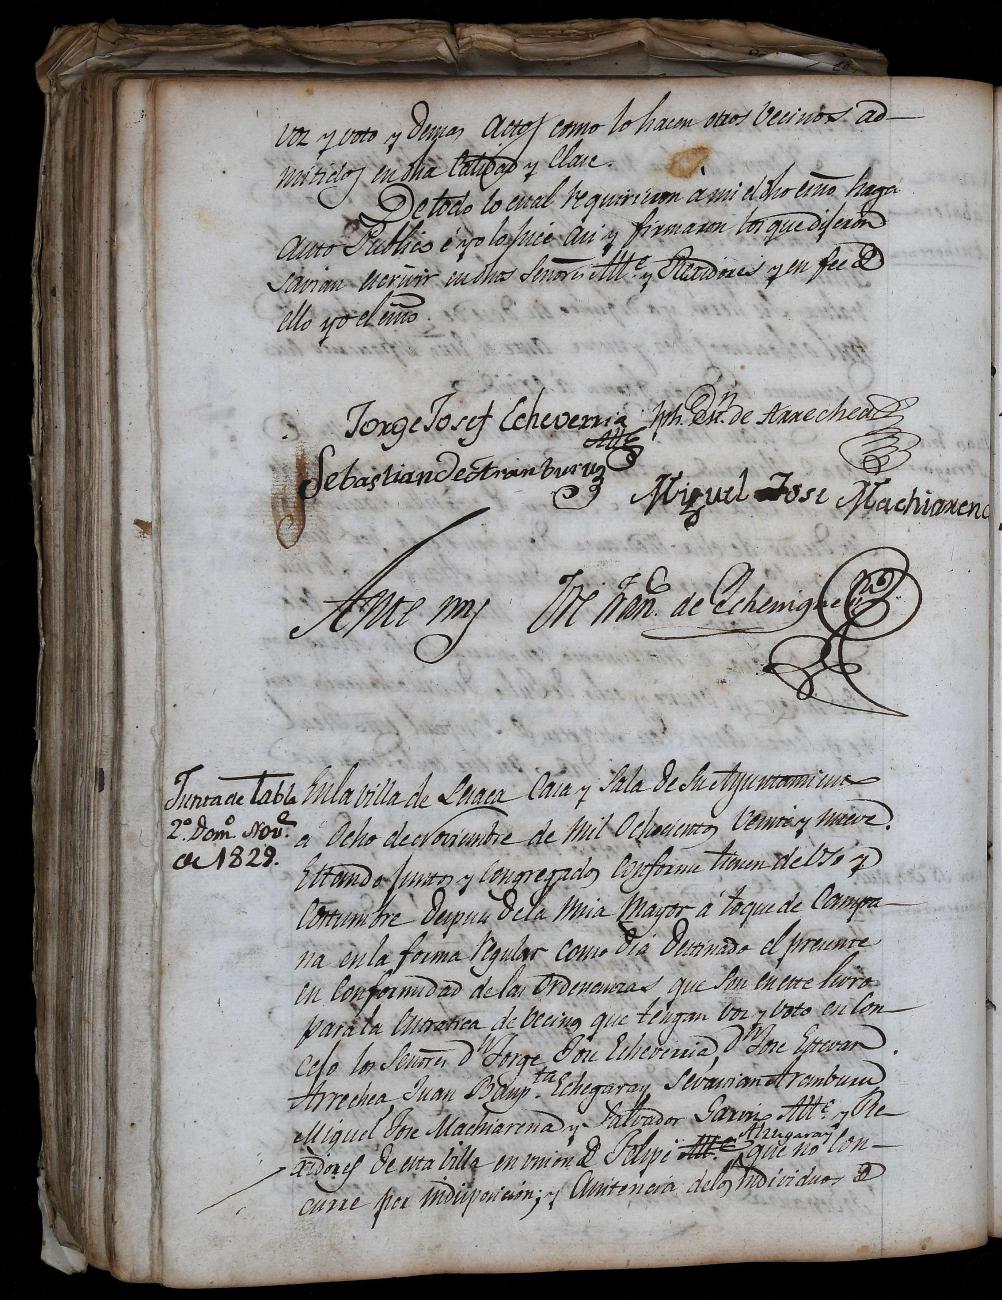 voz y voto y demas Actos como lo hacen otros Vecinos ad-
mitidos en dha Calidad y Clase.
De todo lo cual requirieron á mi el dho esno haga
auto Publico é yo lo hice asi y firmaron los que dijeron
savian escrivir en dhos Señores Alle y Rexidores y en fee de
ello yo el esno.
Jorge Josef Echeverria Jph. Esn. de Arrechea
Alle
Sebastian de Aranburu
Miguel Jose Machiarena
Ante my Jse Fran. de Echenique
Junta de tabla
2º Domº Nove
de 1829.
En la villa de Lesaca Casa y Sala de su Ayuntamiento
a Ocho de Noviembre de mil Ochocientos veinte y nueve.
Estando Juntos y Congregados Conforme tienen de Uso y
Costumbre despues de la misa Mayor á toque de Campa-
na en la forma regular como dia destinado el presente
en Conformidad de las Ordenanzas que son en este livro
para la entratica de Vecinos que tengan voz y voto en Con-
cejo los Señores Dn Jorge Jose Echeverria, Dn Jose Estevan
Arrechea Juan Baupta Echegaray Sevastian Aranburu
Miguel Jose Machiarena y Salvador Alle y Re-
xidores de esta villa en union de Felipe Alzugaray que no con-
curre por indisposicion, y Asistencia de los Individuos de